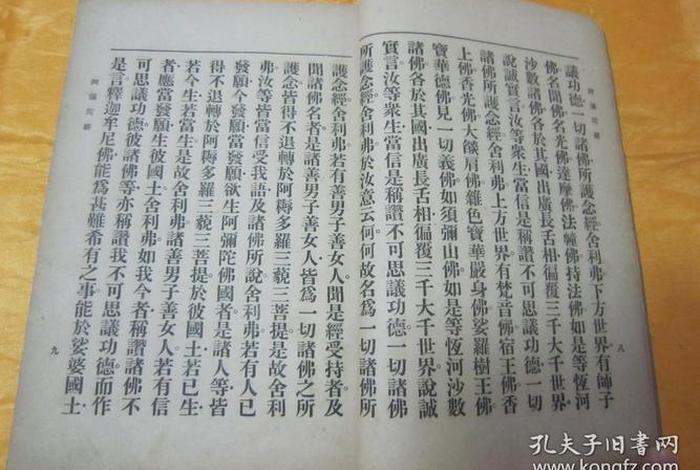 阿彌陀經
八
議功德一切諸佛所護念經舍利弗下方世界有師子
佛名聞佛名光佛達摩佛法幢佛持法佛如是等恆河
沙數諸佛各於其國出廣長舌相徧覆三千大千世界
說誠實言汝等衆生當信是稱讚不可思議功德一切
諸佛所護念經舍利弗上方世界有梵音佛宿王佛香
上佛香光佛大燄肩佛雜色寶華嚴身佛娑羅樹王佛
寶華德佛見一切義佛如須彌山佛如是等恆河沙數
諸佛各於其國出廣長舌相徧覆三千大千世界說誠
實言汝等衆生當信是稱讚不可思議功德一切諸佛
所護念經舍利弗於汝意云何何故名爲一切諸佛所
護念經舍利弗若有善男子善女人聞是經受持者及
聞諸佛名者是諸善男子善女人皆爲一切諸佛之所
護念皆得不退轉於阿耨多羅三藐三菩提是故舍利
弗汝等皆當信受我語及諸佛所說舍利弗若有人已
發願今發願當發願欲生阿彌陀佛國者是諸人等皆
得不退轉於阿耨多羅三藐三菩提於彼國土若已生
若今生若當生是故舍利弗諸善男子善女人若有信
者應當發願生彼國土舍利弗如我今者稱讚諸佛不
可思議功德彼諸佛等亦稱讚我不可思議功德而作
是言釋迦牟尼佛能爲甚難希有之事能於娑婆國土
阿彌陀經
九
孔夫子旧书网
www.kongfz.com